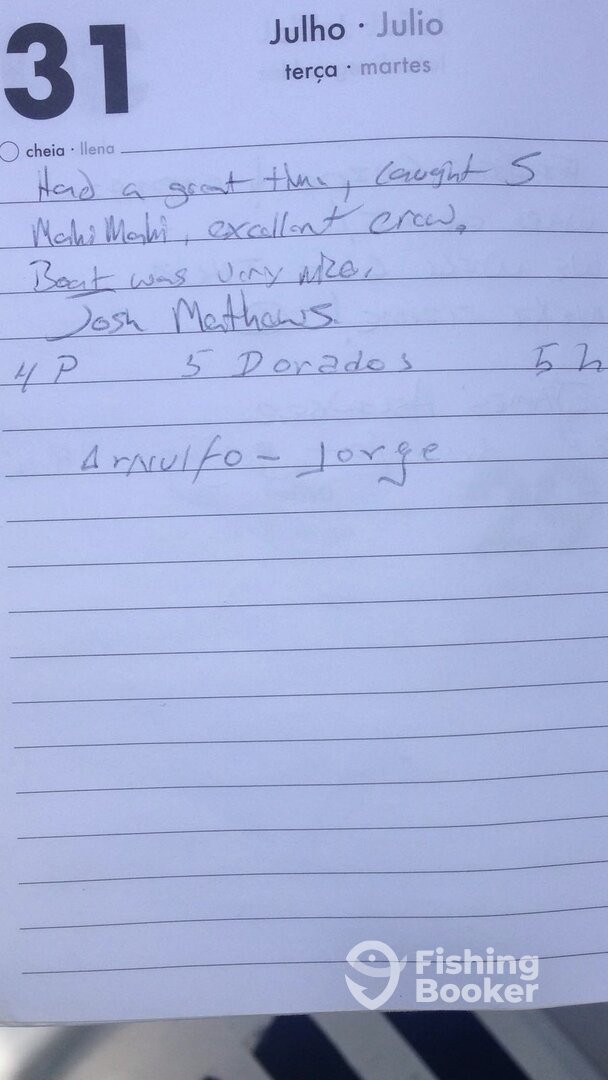 31
Julho · Julio
terça · martes
cheia · llena
Had a great time, caught 5
Mahi Mahi, excellent crew.
Boat was very nice.
Josh Mathews
4 P 5 Dorados 5 h
Arnulfo - Jorge
Fishing
Booker